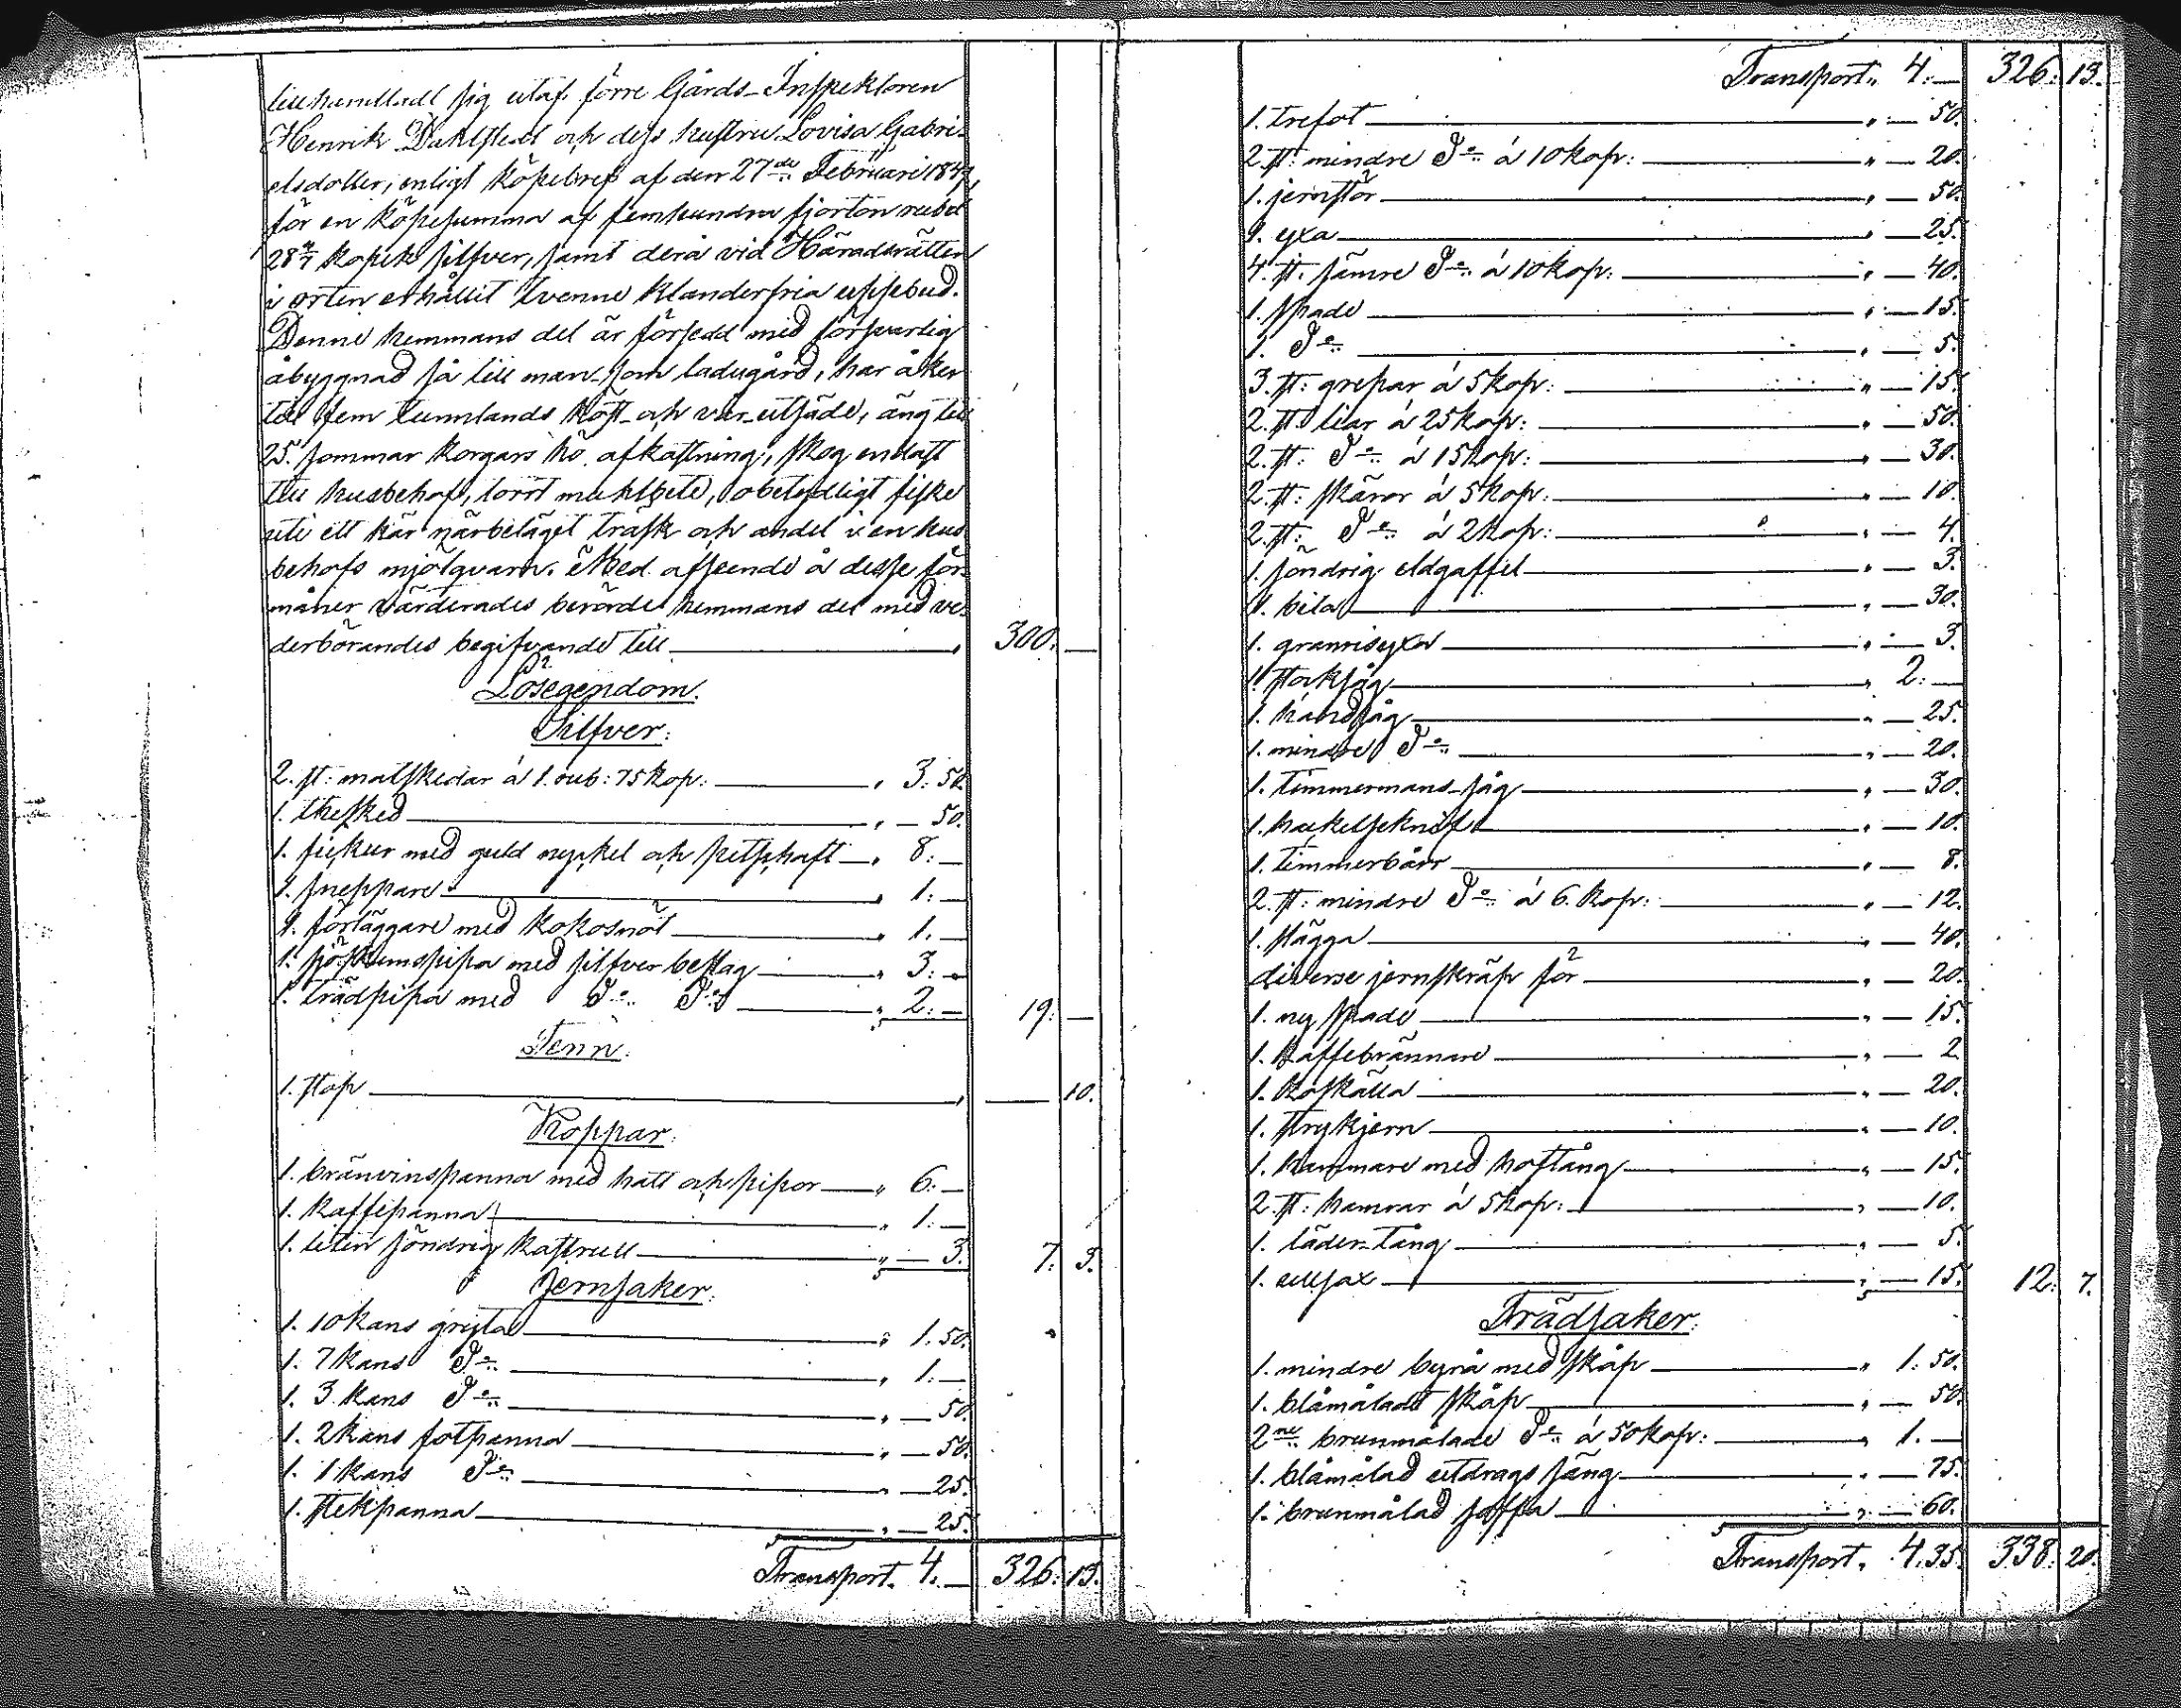 tillhandladt sig utaf förre Gårds-Inspektoren
Henrik Dahlstedt och dess hustru Lovisa Gabri-
elsdotter, enligt köpebref af den 27de Februari 1847,
för en köpesumma af femhundra fjorton rubel
28 4/7 kopek silfver, samt derå vid Häradsrätten
i orten erhållit tvenne klanderfria uppbud.
Denne hemmans del är försedd med försvarlig
åbyggnad så till man- som ladugård, har åker
till fem tunnlands höst- och vår-utsäde, äng till
25. sommar korgars hö afkastning, skog endast
till husbehof, torrt muhlbete, obetydligt fiske
uti ett här närbeläget träsk och andel i en hus-
behofs mjölqvarn. Med afseende å desse för-
måner värderades berörde hemmans del med ve-
derbörandes begifvande till " 300. —
Lösegendom.
Silfver:
2. st: matskedar á 1. rub: 75 kop: " 3. 50.
1. thesked " — 50.
1. fickur med guld nyckel och petschaft " 8. —
1. sneppare " 1. —
1. förläggare med kokosnöt " 1. —
1. sjöskumspipa med silfver beslag " 3. —
1. trädpipa med Do Do " 2. — 19. —
Tenn.
1. stop " — 10.
Koppar.
1. bränvinspanna med hatt och pipor " 6. —
1. kaffepanna " 1. —
1. liten söndrig kastrull " — 3. 7. 3.
Jernsaker.
1. 10 kans gryta " 1. 50.
1. 7 kans Do " 1. —
1. 3 kans Do " — 50.
1. 2 kans fotpanna " — 50.
1. 1 kans Do " — 25.
1. stekpanna " — 25.
Transport. 4. — 326. 13.
Transport. 4. — 326. 13.
1. trefot " — 50.
2. st: mindre Do á 10 kop: " — 20.
1. jernstör " — 50.
1. yxa " — 25.
4. st. sämre Do á 10 kop: " — 40.
1. spade " — 15.
1. Do " — 5.
3. st: grepar á 5 kop: " — 15.
2. st. liar á 25 kop: " — 50.
2. st: Do á 15 kop: " — 30.
2. st: skäror á 5 kop: " — 10.
2. st: Do á 2 kop: " — 4.
1. söndrig eldgaffel " — 3.
1. bila " — 30.
1. granrisyxa " — 3.
1. stocksåg " 2. —
1. handsåg " — 25.
1. mindre Do " — 20.
1. timmermans-såg " — 30.
1. hackelseknif " — 10.
1. timmerbårr " — 8.
2. st: mindre Do á 6. kop: " — 12.
1. slägga " — 40.
diverse jernskräp för " — 20.
1. ny spade " — 15.
1. kaffebrännare " — 2.
1. koskälla " — 20.
1. strykjern " — 10.
1. hammare med hoftång " — 15.
2. st: hamrar á 5 kop: " — 10.
1. läder-tång " — 5.
1. ullsax " — 15. 12. 7.
Trädsaker.
1. mindre byrå med skåp " 1. 50.
1. blåmåladt skåp " — 50.
2ne brunmålade Do á 50 kop: " 1. —
1. blåmålad utdrags säng " — 75.
1. brunmålad soffa " — 60.
Transport. 4. 35. 338. 20.